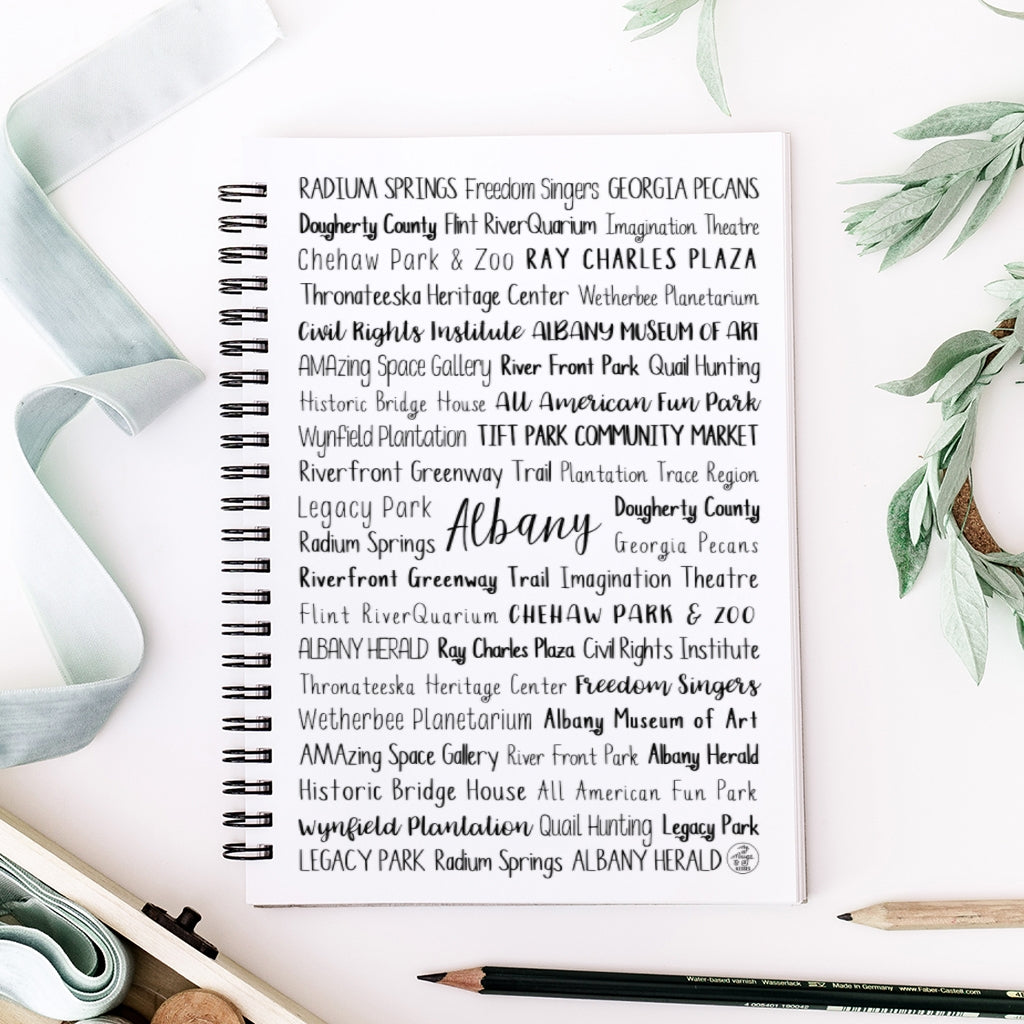 RADIUM SPRINGS Freedom Singers GEORGIA PECANS
Dougherty County Flint RiverQuarium Imagination Theatre
Chehaw Park & Zoo RAY CHARLES PLAZA
Thronateeska Heritage Center Wetherbee Planetarium
Civil Rights Institute ALBANY MUSEUM OF ART
AMAzing Space Gallery River Front Park Quail Hunting
Historic Bridge House All American Fun Park
Wynfield Plantation TIFT PARK COMMUNITY MARKET
Riverfront Greenway Trail Plantation Trace Region
Legacy Park Albany Dougherty County
Radium Springs Georgia Pecans
Riverfront Greenway Trail Imagination Theatre
Flint RiverQuarium CHEHAW PARK & ZOO
ALBANY HERALD Ray Charles Plaza Civil Rights Institute
Thronateeska Heritage Center Freedom Singers
Wetherbee Planetarium Albany Museum of Art
AMAzing Space Gallery River Front Park Albany Herald
Historic Bridge House All American Fun Park
Wynfield Plantation Quail Hunting Legacy Park
LEGACY PARK Radium Springs ALBANY HERALD
Water-based varnish Wasserlack Made in Germany www.Faber-Castell.com
4 005401 190042